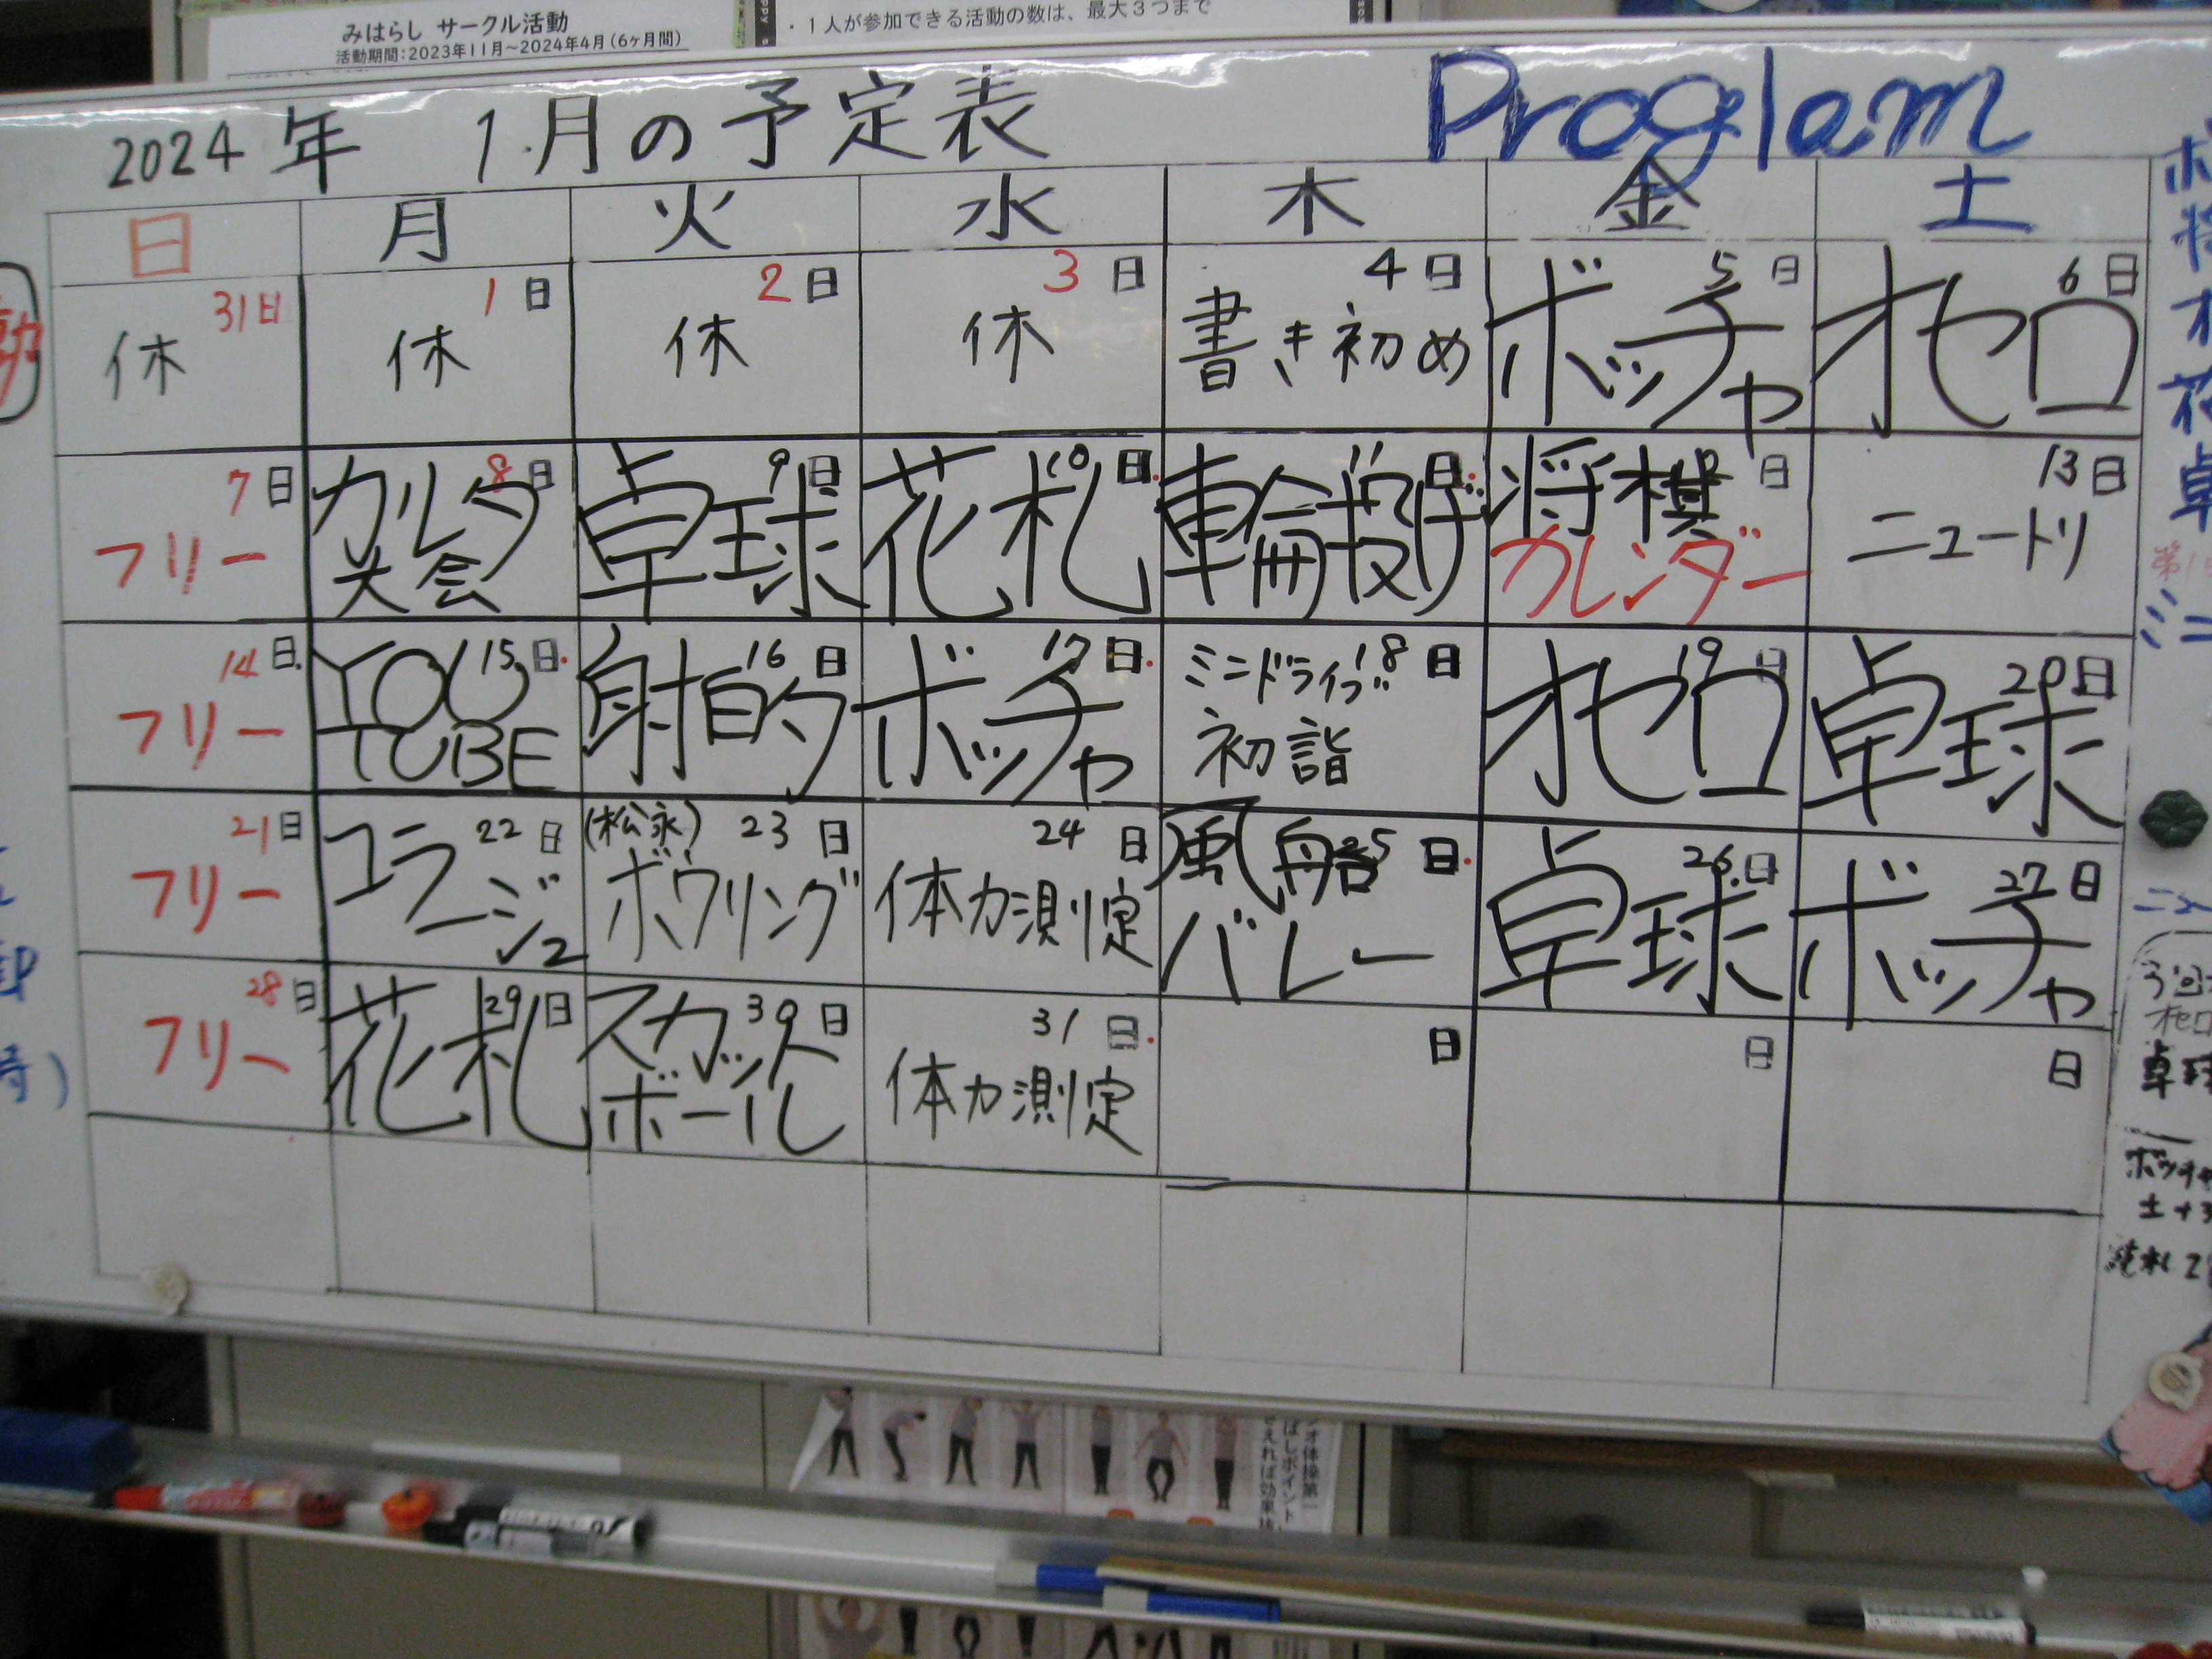 みはらし サークル活動
活動期間:2023年11月~2024年4月(6ヶ月間)
・1人が参加できる活動の数は、最大3つまで
2024年 1月の予定表 Proglam
日 月 火 水 木 金 土
31日 1日 2日 3日 4日 5日 6日
休 休 休 休 書き初め ボッチャ オセロ
7日 8日 9日 10日 11日 日 13日
フリー カルタ 卓球 花札 輪投げ 将棋 ニュートリ
大会 カレンダー
14日 15日 16日 17日 18日 19日 20日
フリー YOU 射的 ボッチャ ミニドライブ オセロ 卓球
TUBE 初詣
21日 22日 (松永) 23日 24日 25日 26日 27日
フリー コラージュ ボウリング 体力測定 風船 卓球 ボッチャ
バレー
28日 29日 30日 31日 日 日 日
フリー 花札 スカット 体力測定
ボール